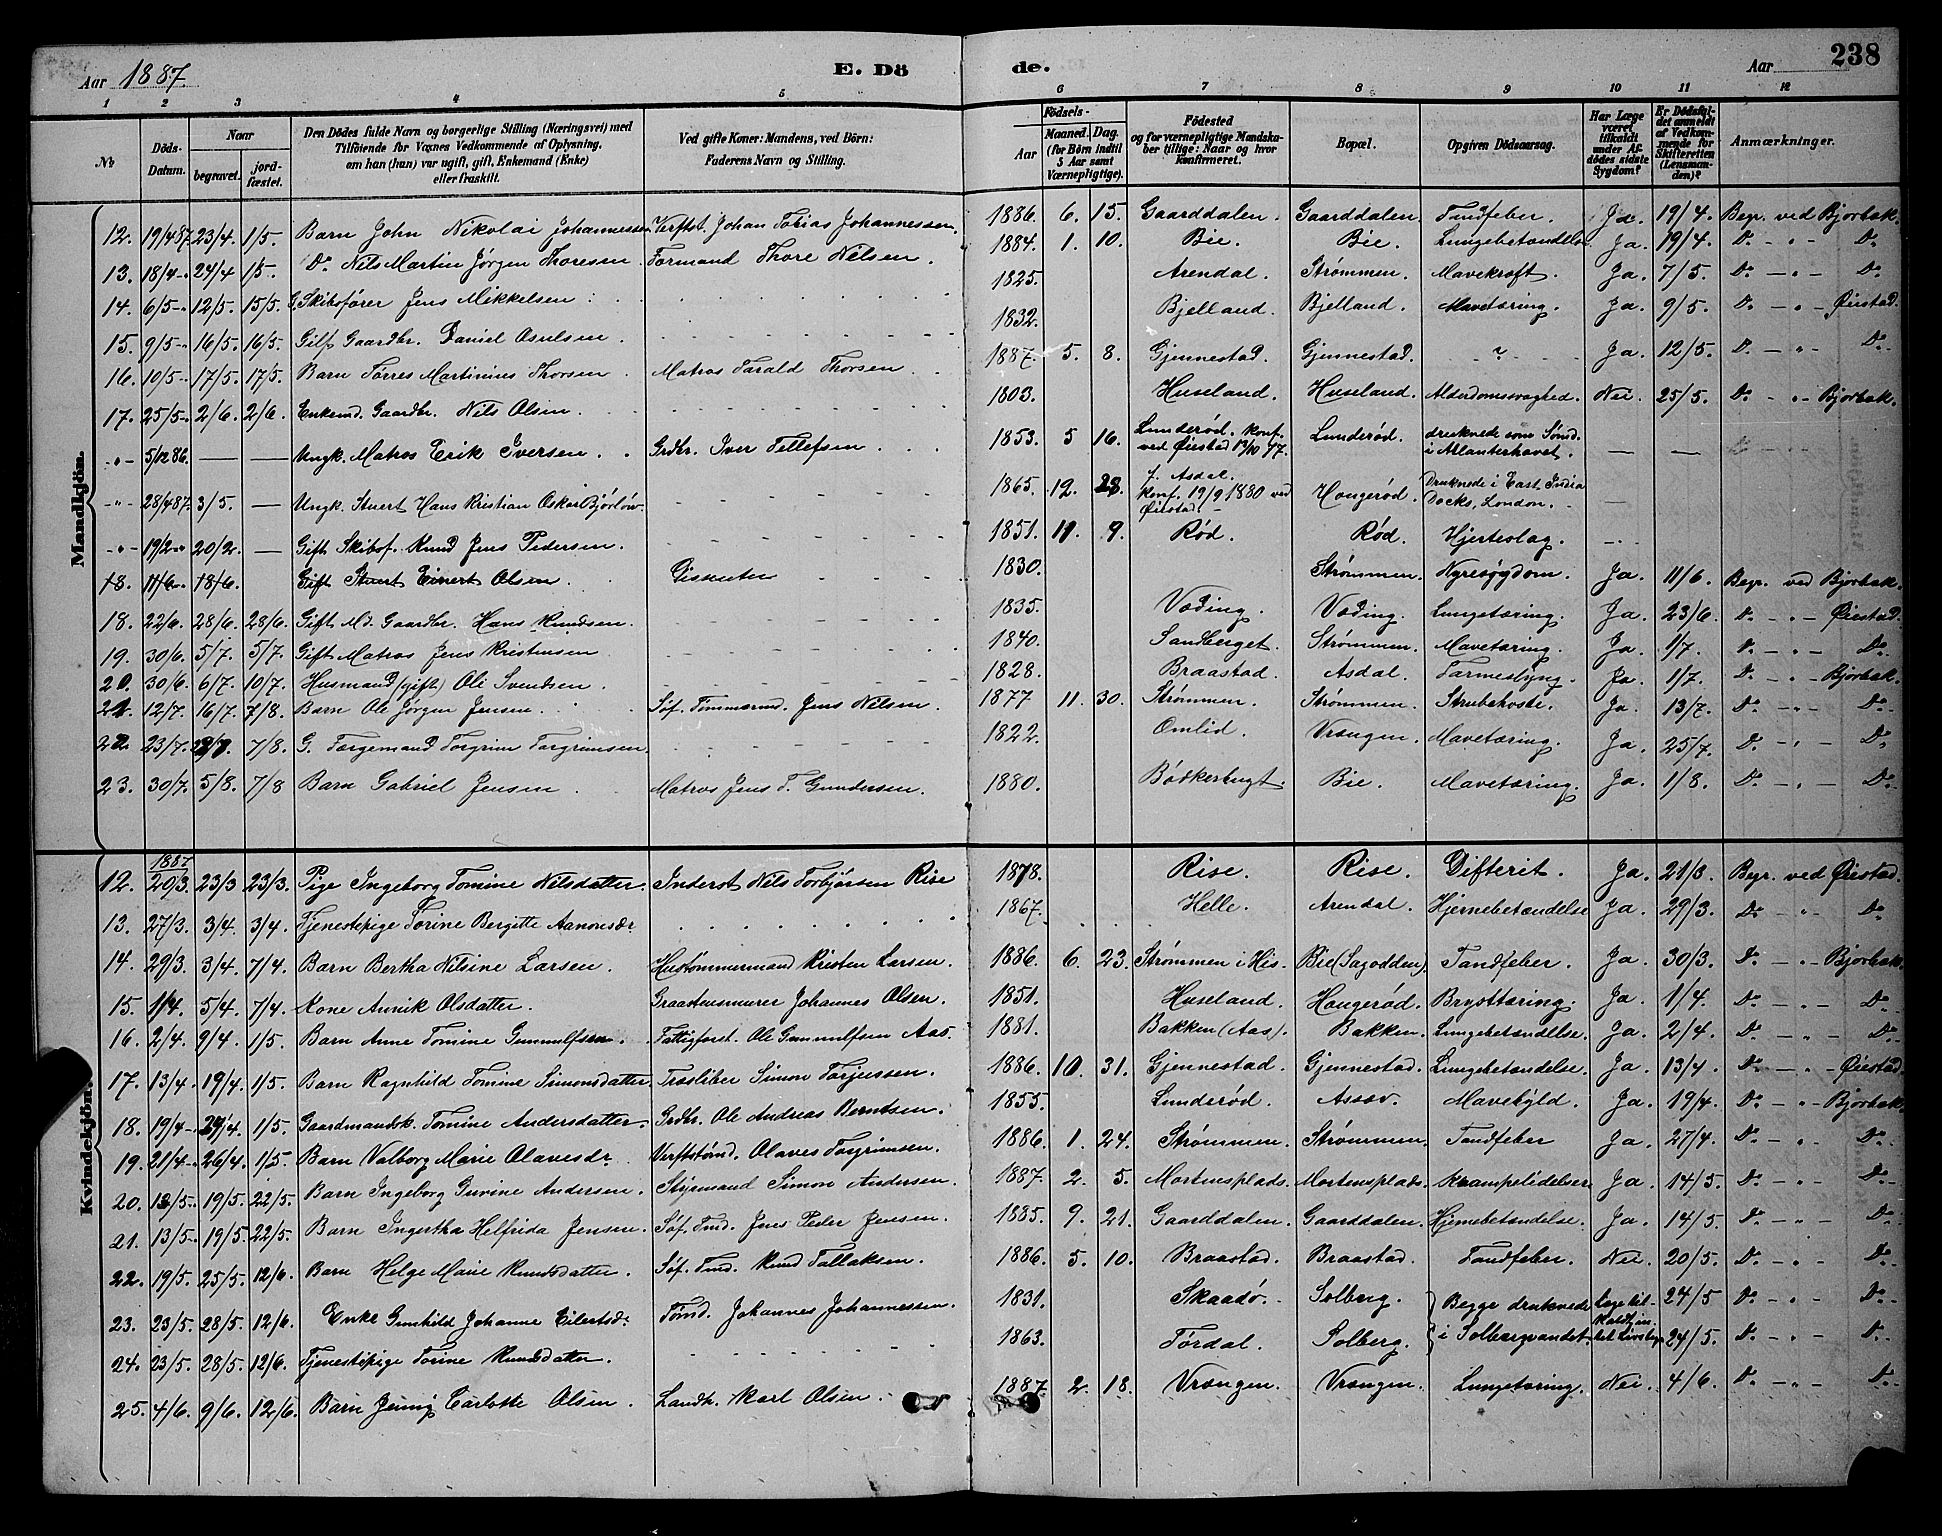 Aar 1887. E. Dö de. Aar 238
1 2 3 4 5 6 7 8 9 10 11 12
No Döds-Datum. Naar begravet. jordfæstet. Den Dödes fulde Navn og borgerlige Stilling (Næringsvei) med Tilföiende for Voxnes Vedkommende af Oplysning, om han (hun) var ugift, gift, Enkemand (Enke) eller fraskilt. Ved gifte Koner: Mandens, ved Börn: Faderens Navn og Stilling. Födsels- Aar Maaned. Dag. (for Börn indtil 5 Aar samt Værnepligtige). Födested og for værnepligtige Mandskaber tillige: Naar og hvor konfirmeret. Bopæl. Opgiven Dödsaarsag. Har Læge været tilkaldt under Afdödes sidste Sygdom? Er Dödsfaldet anmeldt af Vedkommende for Skifteretten (Lensmanden)? Anmærkninger.
Mandkjön.
12. 19/4 87. 23/4 1/5. Barn John Nikolai Johannessen Verftst. Johan Tobias Johannessen. 1886. 6. 15. Gaarddalen. Gaarddalen. Tandfeber. Ja. 19/4. Begr. ved Bjorbak.
13. 18/4 -"- 24/4 1/5. Do Nils Martin Jørgen Thoresen. Formand Thore Nilsen. 1884. 1. 10. Bie. Bie. Lungebetændelse. Ja. 19/4. Do - " - Do
14. 6/5 -"- 12/5. 15/5. G. Skibsfører Jens Mikkelsen. 1825. Arendal. Strømmen. Mavekræft. Ja. 7/5. Do - " - Do
15. 9/5 -"- 16/5. 16/5. Gift Gaardbr. Daniel Osulsen. 1832. Bjelland. Bjelland. Mavetæring. Ja. 9/5. Do - " - Øiestad.
16. 10/5 -"- 17/5. 17/5. Barn Tørres Martinius Thorsen. Matros Tarald Thorsen. 1887. 5. 8. Gjennestad. Gjennestad. - ? - Ja. 12/5. Do - " - Do
17. 25/5 -"- 2/6. 2/6. Enkemd. Gaardbr. Nils Olsen. 1803. Huseland. Huseland. Alderdomssvaghed. Nei. 25/5. Do - " - Bjorbak.
-"- 5/12 86. — — Ungk. Matros Erik Iversen. Grdbr. Iver Tellefsen. 1853. 5 16. Lunderød. konf. ved Øiestad 13/10 77. Lunderød. druknede som Sømd. i Atlanterhavet. — —
-"- 28/4 87. 3/5. — Ungk. Stuert Hans Kristian Oskar Bjorløw. 1865. 12. 28. f. Asdal. konf. 19/9 1880 ved Øiestad. Hougerød. Druknede i East India Docks, London. —
-"- 19/2 -"- 20/2. — Gift Skibsf. Knud Jens Pedersen. 1851. 11. 9. Rød. Rød. Hjerteslag. —
18. 11/6 -"- 18/6. Gift Stuert Einert Olsen. 1830. Strømmen. Nyresygdom. Ja. 11/6. Begr. ved Bjorbak.
18. 22/6. 28/6. 28/6. Gift Md. Gaardbr. Hans Knudsen. 1835. Væding. Væding. Lungetæring. Ja. 23/6. Do - " - Øiestad.
19. 30/6. 5/7. 5/7. Gift Matros Jens Kristensen. 1840. Sandberget. Strømmen. Mavetæring. Ja. 1/7. Do - " - Do
20. 30/6. 6/7. 10/7. Husmand (gift) Ole Svendsen. 1828. Braastad. Asdal. Tarmeslyng. Ja. 1/7. Do - " - Bjorbak.
21. 12/7. 16/7. 7/8. Barn Ole Jørgen Jensen. Søf. Tømmermd. Jens Nilsen. 1877 11. 30. Strømmen. Strømmen. Strubehoste. Ja. 13/7. Do - " - Do
22. 23/7. 7/8. G. Færgemand Torgrim Torgrimsen. 1822. Omlid. Vrængen. Mavetæring. Ja. 25/7. Do - " - Do
23. 30/7. 5/8. 7/8 Barn Gabriel Jensen. Matros Jens T. Gundersen. 1880. Bødkerbugt Bie. Mavetæring. Ja. 1/8. Do - " - Do
Kvindekjön.
12. 1887 20/3. 23/3 23/3. Pige Ingeborg Tomine Nilsdatter. Inderst Nils Torbjørsen Rise 1878. Rise. Rise. Difterit. Ja. 21/3. Begr. ved Øiestad.
13. 27/3. 3/4. 3/4. Tjenestepige Torine Bergitte Aanonsdr 1867. Helle. Arendal. Hjernebetændelse Ja. 29/3. Do " Do
14. 29/3. 3/4. 7/4. Barn Bertha Nilsine Larsen. Hustømmermand Kristen Larsen. 1886. 6. 23. Strømmen i His. Bie (Sagodden) Tandfeber. Ja. 30/3. Do - " - Bjorbak.
15. 1/4. 5/4. 7/4. Kone Annik Olsdatter. Graastensmurer Johannes Olsen. 1851. Huseland. Hougerød. Brysttæring. Ja. 1/4. Do " - Do
16. 2/4. 9/4. 1/5. Barn Anne Tomine Gunnulfsen. Fattigforst. Ole Gunnulfsen Aas. 1881. Bakken (Aas). Bakken. Lungebetændelse. Ja. 2/4. Do - " - Do
17. 13/4. 19/4. 1/5. Barn Ragnhild Tomine Simonsdatter. Træsliber Simon Terjessen. 1886. 10. 31. Gjennestad. Gjennestad. Lungebetændelse. Ja. 13/4. Do - " - Øiestad.
18. 19/4 - 24/4. 1/5. Gaardmandsk. Tomine Andersdatter. Grdbr. Ole Andreas Berntsen. 1855. Lunderød. Assæv. Mavebyld. Ja. 19/4. Do - " - Bjorbak.
19. 21/4 - 26/4. 1/5. Barn Valborg Marie Olavesdr. Verftstømd. Olaves Torgrimsen. 1886. 1. 24. Strømmen. Strømmen. Tandfeber Ja. 27/4. Do - " - Do
20. 13/5 - 19/5. 22/5. Barn Ingeborg Gurine Andersen. Styrmand Simon Andersen. 1887. 2. 5. Mortensplads. Mortensplads. Krampelidelser. Ja. 14/5. Do - " - Do
21. 13/5 - 19/5. 22/5. Barn Ingertha Helfrida Jensen. Søf. Tmd. Jens Peder Jensen. 1885. 9. 21. Gaarddalen. Gaarddalen. Hjernebetændelse. Ja. 14/5. Do - " - Do
22. 19/5. 25/5. 12/6. Barn Helge Marie Knudsdatter. Søf. Tmd. Knud Tallaksen. 1886. 5. 10. Braastad. Braastad. Tandfeber. Nei. 20/5. Do - " - Do
23. 23/5. 28/5. 12/6. Enke Gunhild Johanne Eilertsdr. Tømd. Johannes Johannessen. 1831. Skaadø. Solberg. Begge druknede Læge til- 24/5 Do - " - Do
24. 23/5. 28/5. 12/6. Tjenestepige Torine Knudsdatter. 1863. Tørdal. Solberg. i Solbergvandet. 24/5. Do - " - Do
25. 4/6. 9/6. 12/6. Barn Jenny Carlotte Olsen. Landh. Karl Olsen. 1887. 2. 18. Vrængen. Vrængen. Lungetæring. Nei. 4/6. Do - " - Do